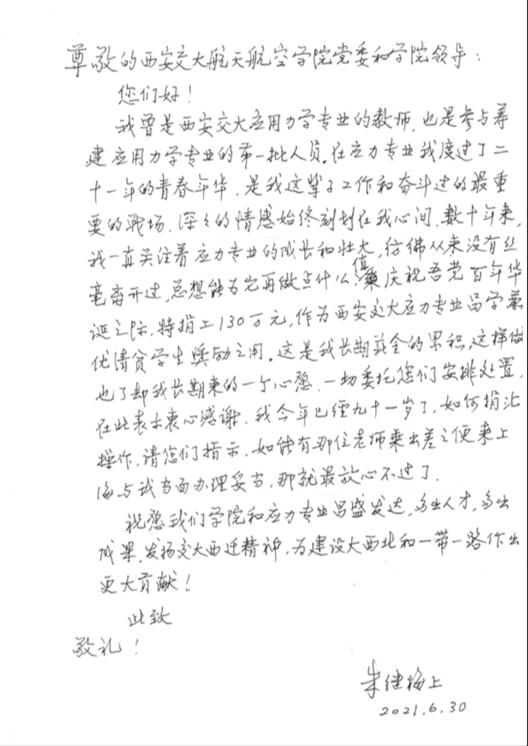 尊敬的西安交大航天航空学院党委和学院领导：
您们好！
我曾是西安交大应用力学专业的教师，也是参与筹
建应用力学专业的第一批人员。在应力专业我度过了二
十一年的青春年华，是我这辈子工作和奋斗过的最重
要的战场。深深的情感始终刻划在我心间。数十年来，
我一直关注着应力专业的成长和壮大，彷彿从来没有丝
毫离开过，总想能为它再做点什么。值兹庆祝吾党百年华
诞之际，特捐上130万元，作为西安交大应力专业品学兼
优清贫学生奖励之用。这是我长期薪金的累积，这样做
也了却我长期来的一个心愿。一切委托您们安排处置，
在此表示衷心感谢。我今年已经九十一岁了，如何捐汇
操作，请您们指示。如能有那位老师乘出差之便来上
海与我当面办理妥当，那就最放心不过了。
祝愿我们学院和应力专业昌盛发达，多出人才，多出
成果，发扬交大西迁精神，为建设大西北和一带一路作出
更大贡献！
此致
敬礼！
朱继梅上
2021.6.30